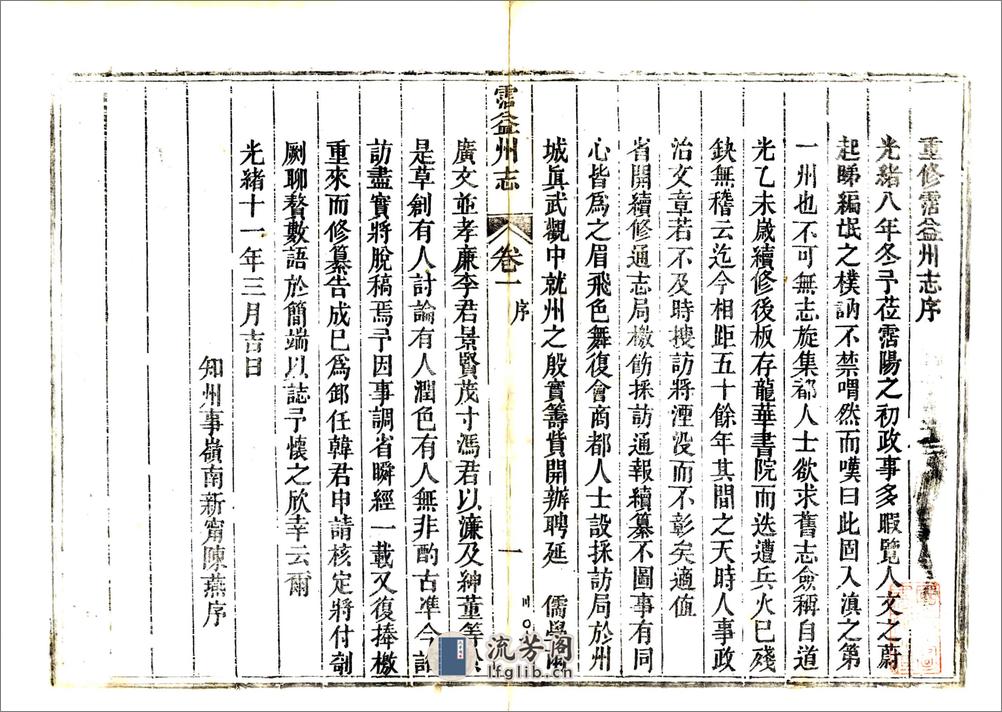 重修霑益州志序
光緒八年冬予莅霑陽之初政事多暇覽人文之蔚
起睇編氓之樸訥不禁喟然而嘆曰此固入滇之第
一州也不可無志旋集都人士欲求舊志僉稱自道
光乙未歲續修後板存龍華書院而迭遭兵火已殘
缺無稽云迄今相距五十餘年其間之天時人事政
治文章若不及時搜訪將湮没而不彰矣適值
省開續修通志局檄飭採訪通報續纂不圖事有同
心皆為之眉飛色舞復會商都人士設採訪局於州
城眞武觀中就州之殷實籌貲開辦聘延 儒學
霑益州志 卷一 序 一
廣文並孝廉李君景賢茂才馮君以濂及紳董等於
是草創有人討論有人潤色有人無非酌古準今
訪盡實將脫稿焉予因事調省瞬經一載又復捧檄
重來而修纂告成已為卸任韓君申請核定將付剞
劂聊贅數語於簡端以誌予懷之欣幸云爾
光緒十一年三月吉日
知州事嶺南新甯陳燕序
流芳阁
lfglib.com